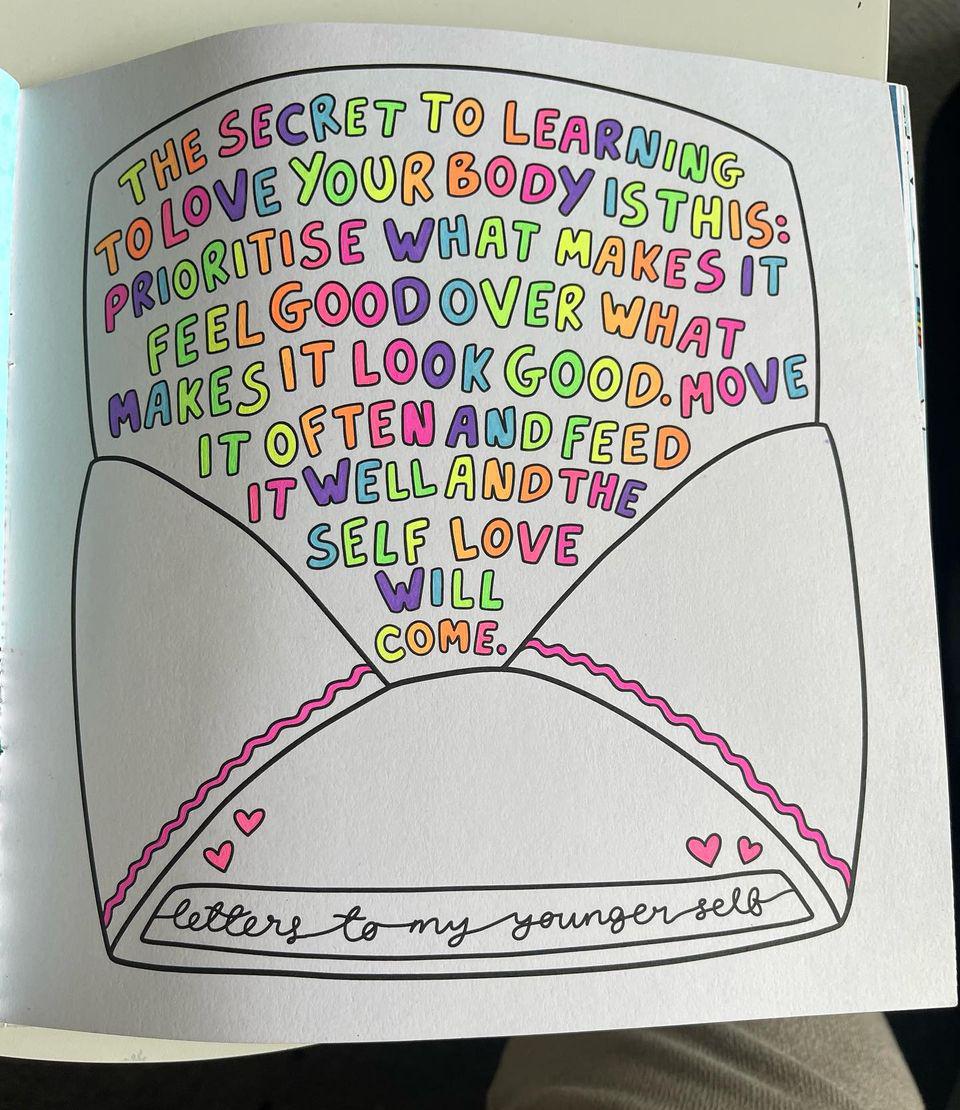 THE SECRET TO LEARNING
TO LOVE YOUR BODY IS THIS:
PRIORITISE WHAT MAKES IT
FEEL GOOD OVER WHAT
MAKES IT LOOK GOOD. MOVE
IT OFTEN AND FEED
IT WELL AND THE
SELF LOVE
WILL
COME.
letters to my younger self